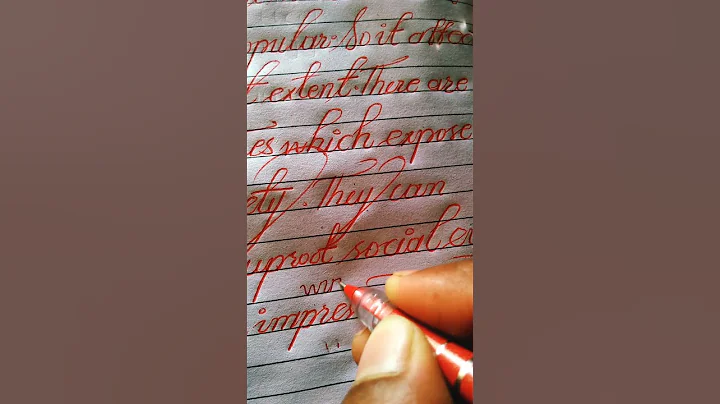 opular. So it affec
t extent. There are
es which expose
ety. They can
uproot social ev
win
impres